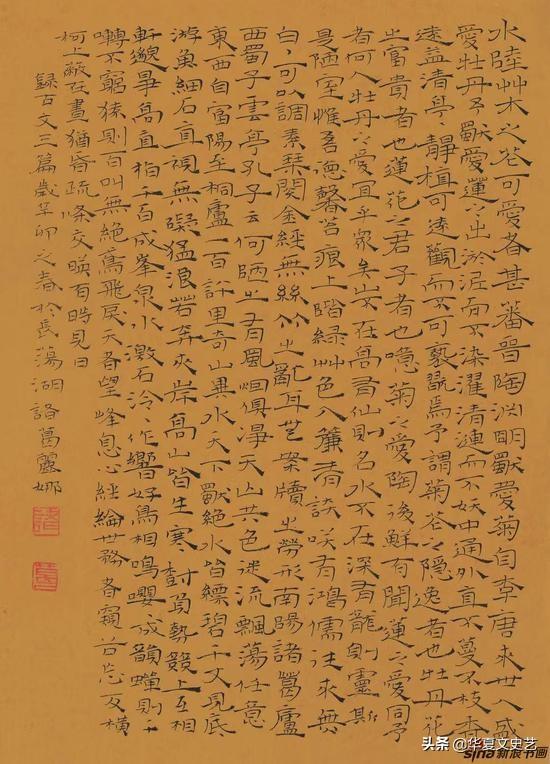 水陸艸木之花可愛者甚蕃晉陶淵明獨愛菊自李唐來世人盛
愛牡丹予獨愛蓮之出淤泥而不染濯清漣而不妖中通外直不蔓不枝香
遠益清亭〻靜植可遠觀而不可褻翫焉予謂菊花之隱逸者也牡丹花
之富貴者也蓮花之君子者也噫菊之愛陶後鮮有聞蓮之愛同予
者何人牡丹之愛宜乎眾矣山不在高有仙則名水不在深有龍則靈斯
是陋室惟吾德馨苔痕上階綠艸色入簾青談咲有鴻儒往來無
白丁可以調素琴閱金經無絲竹之亂耳無案牘之勞形南陽諸葛廬
西蜀子雲亭孔子云何陋之有風烟俱淨天山共色從流飄蕩任意
東西自富陽至桐廬一百許里奇山異水天下獨絕水皆縹碧千丈見底
游魚細石直視無礙猛浪若奔夾岸高山皆生寒樹負勢競上互相
軒邈爭高直指千百成峯泉水激石泠〻作響好鳥相鳴嚶〻成韻蟬則千
囀不窮猿則百叫無絕鳶飛戾天者望峰息心經綸世務者窺谷忘反橫
柯上蔽在晝猶昏疏條交映有時見日
錄古文三篇歲辛卯之春於長蕩湖諸葛麗娜
头条 @华夏文史艺
sina新浪书画